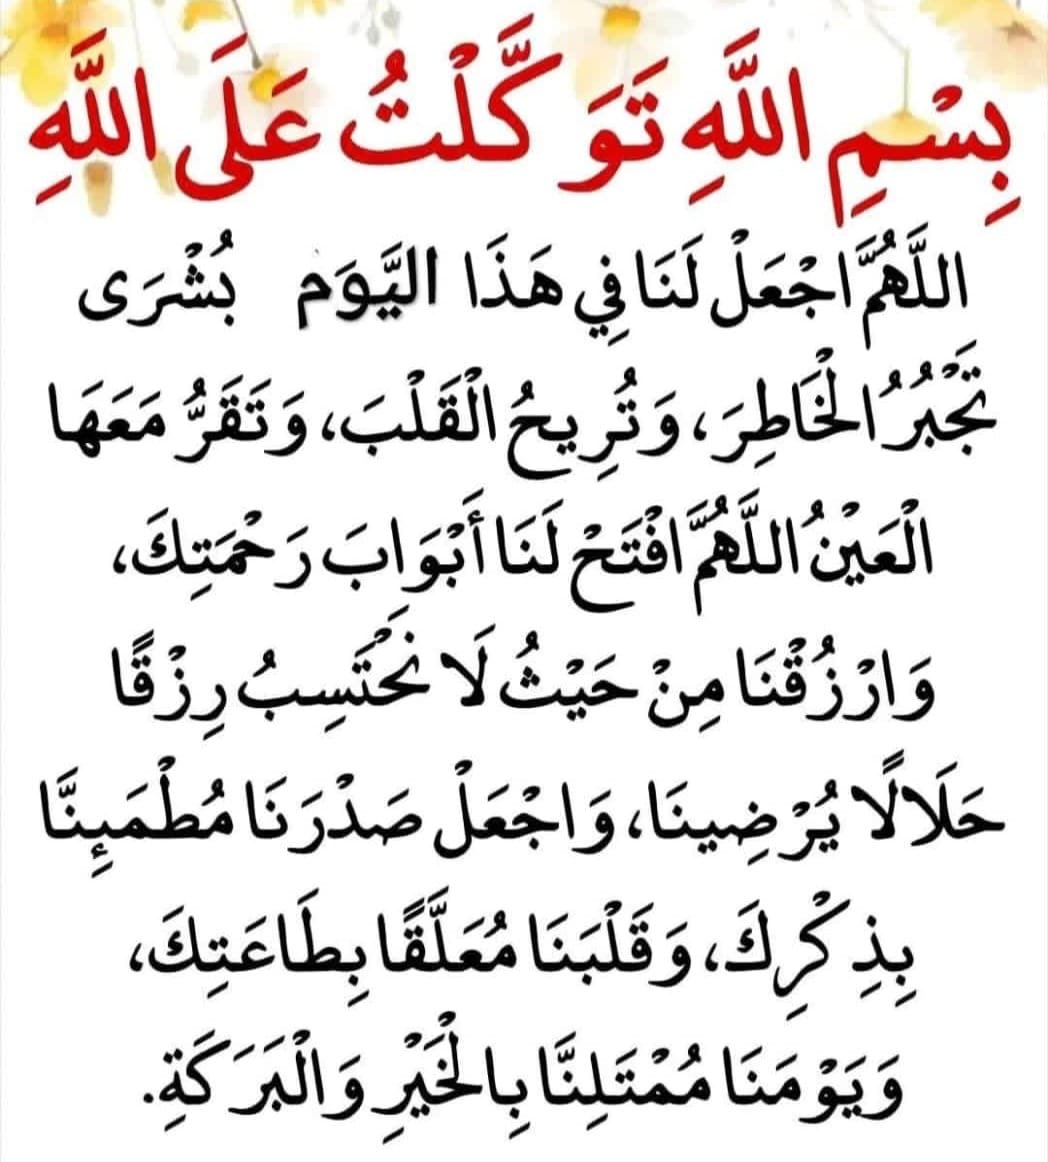 بِسْمِ اللَّهِ تَوَكَّلْتُ عَلَى اللَّهِ
اللَّهُمَّ اجْعَلْ لَنَا فِي هَذَا اليَّوَم بُشْرَى
تَجْبُرُ الْخَاطِرَ، وَتُرِيحُ الْقَلْبَ، وَتَقَرُّ مَعَهَا
الْعَيْنُ اللَّهُمَّ افْتَحْ لَنَا أَبْوَابَ رَحْمَتِكَ،
وَارْزُقْنَا مِنْ حَيْثُ لَا نَحْتَسِبُ رِزْقًا
حَلَالًا يُرْضِينَا، وَاجْعَلْ صَدْرَنَا مُطْمَئِنًّا
بِذِكْرِكَ، وَقَلْبَنَا مُعَلَّقًا بِطَاعَتِكَ،
وَيَوْمَنَا مُمْتَلِنًّا بِالْخَيْرِ وَالْبَرَكَةِ.